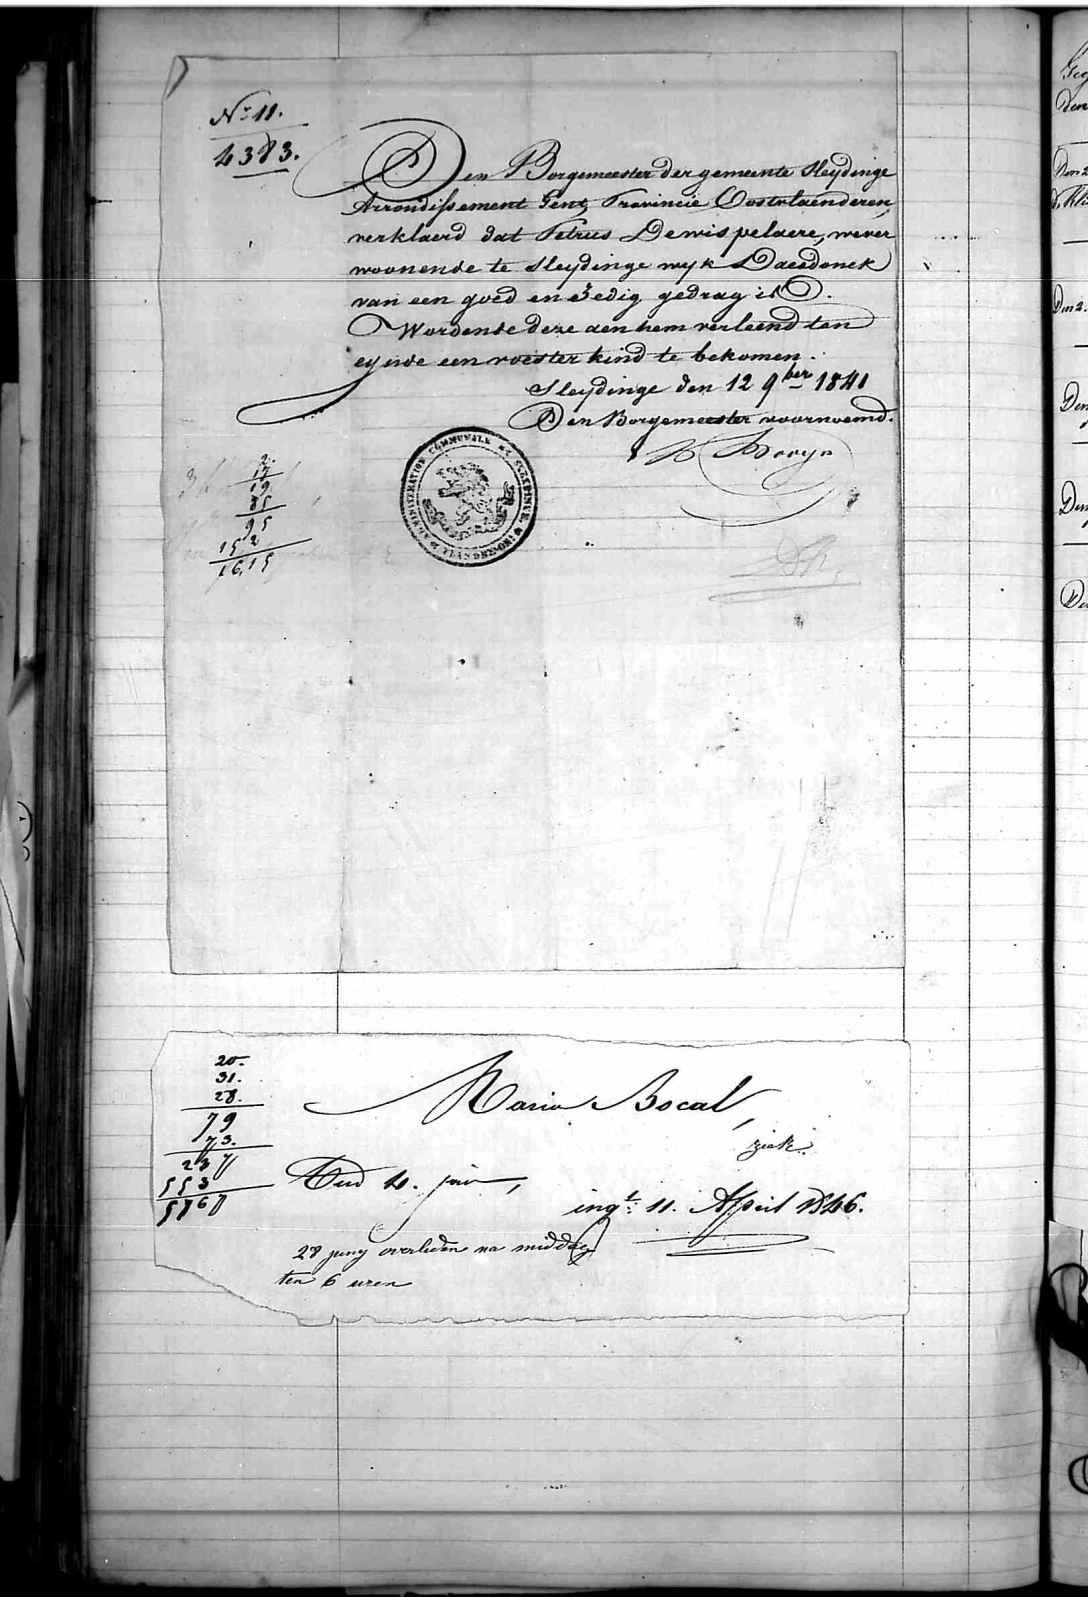 N.º 11.
4383.
Den Borgemeester der gemeente Sleydinge
Arrondissement Gent, Provincie Oostvlaenderen,
verklaerd dat Petrus Dewispelaere, wever
woonende te Sleydinge wyk Daesdonck
van een goed en zedig gedrag is.
Wordende deze aen hem verleend ten
eynde een voester kind te bekomen.
Sleydinge den 12 9ber 1841
Den Borgemeester voornoemd.
ADMINISTRATION COMMUNALE DE SLEYDINGE
19
35
95
152
20.
31.
28.
79
73.
237
553
5767
Maria Bocal,
ziek.
Oud 4. jaer,
ingt. 11. April 1846.
28 juny overleden na middag
ten 6 uren